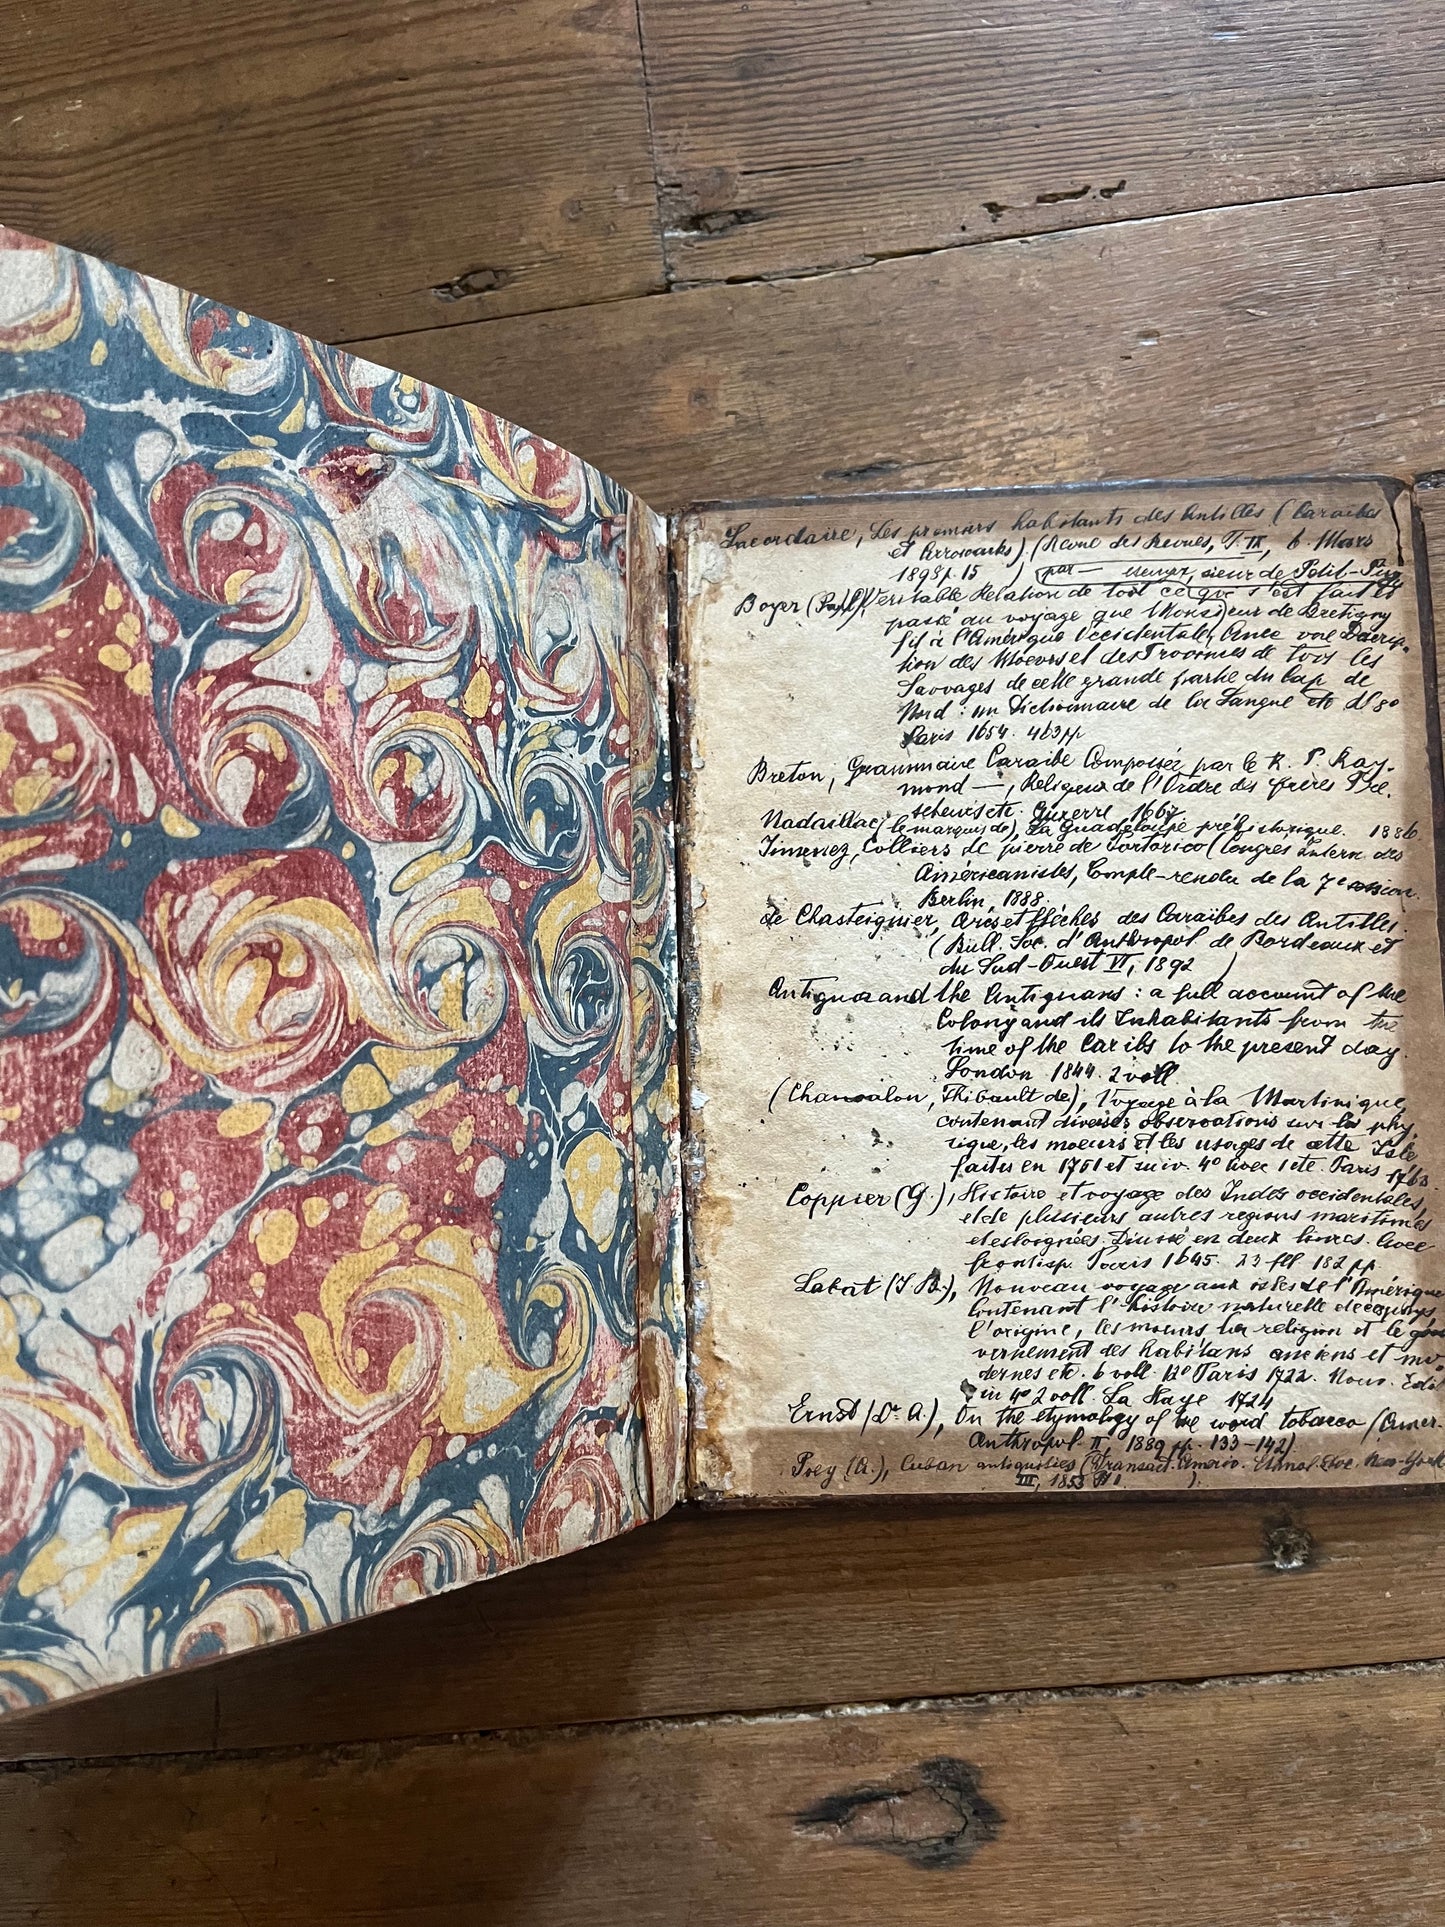 Lacordaire, Les premiers habitants des Antilles (Caraibes
et Arrowacks). (Revue des Revues, T. IX, 6. Mars
1898 p. 15 ) (par — sieur de Petit-Puy
Boyer (Paul) Veritable Relation de tout ce que s'est fait et
passé au voyage que Monsieur de Bretigny
fit à l'Amérique Occidentale, Avec une Descrip-
tion des Moeurs et des Provinces de tous les
Sauvages de cette grande partie du Cap de
Nord: un Dictionnaire de la Langue etc 8o
Paris 1654. 463 pp
Breton, Grammaire Caraibe Composée par le R. P. Ray-
mond —, Religieux de l'Ordre des frères Pre.
scheurs etc. Auxerre 1667.
Nadaillac (le marquis de), La Guadeloupe préhistorique. 1886
Jimenez, Colliers de pierre de Portorico (Congres Intern. des
Américanistes, Compte-rendu de la 7e session.
Berlin, 1888.
de Chasteignier, Arcs et flèches des Caraïbes des Antilles.
(Bull. Soc. d'Anthropol. de Bordeaux et
du Sud-Ouest VI, 1892 )
Antigua and the Antiguans: a full account of the
Colony and its Inhabitants from the
time of the Caribs to the present day.
London 1844. 2 voll.
(Chanvalon, Thibault de), Voyage à la Martinique,
contenant diverses observations sur la phy.
sique, les moeurs et les usages de cette Isle
faites en 1751 et suiv. 4o Avec 1 cte. Paris 1763.
Coppier (G.), Histoire et voyage des Indes occidentales,
et de plusieurs autres regions maritimes
et esloignées. Divisé en deux livres. Avec
frontisp. Paris 1645. 23 ff 182 pp
Labat (J. B.), Nouveau voyage aux isles de l'Amérique
Contenant l'histoire naturelle de ces pays
l'origine, les moeurs la religion et le gou
vernement des habitans anciens et mo.
dernes etc. 6 voll. 12o Paris 1722. Nouv. Edit
in 4o 2 voll. La Haye 1724
Ernst (Dr. A.), On the etymology of the word tobacco (Amer.
Anthropol. II, 1889 pp. 133-142).
Poey (A.), Cuban antiquities (Transact. Americ. Ethnol. Soc. New-York
III, 1853 ).